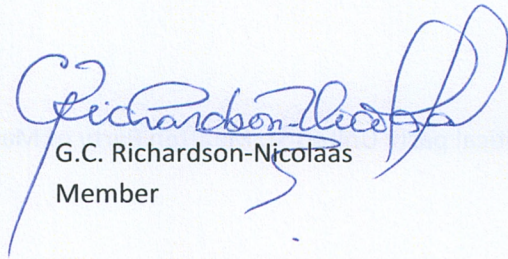 G Richardson-Nicolaas
G.C. Richardson-Nicolaas
Member